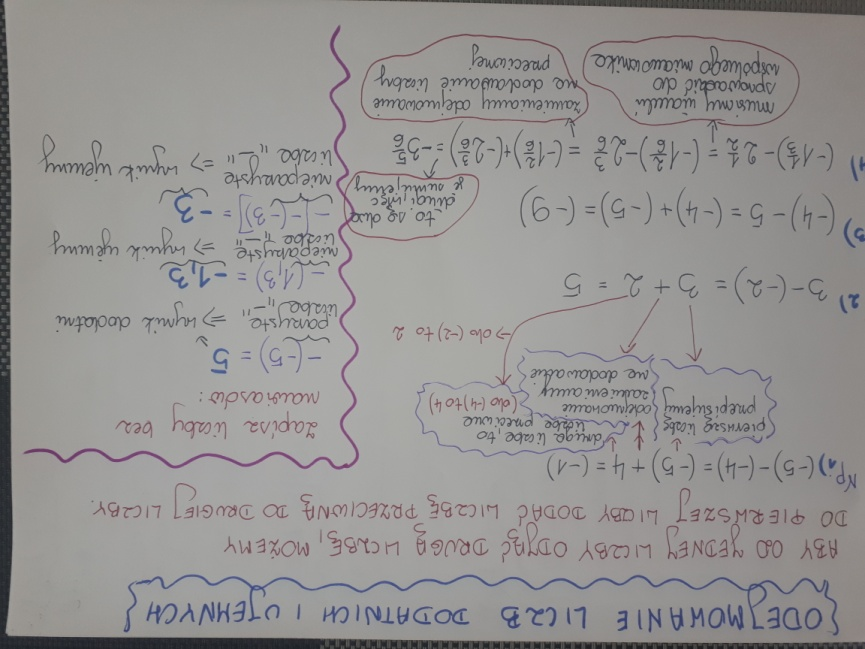 {ODEJMOWANIE LICZB DODATNICH I UJEMNYCH}
ABY OD JEDNEJ LICZBY ODJĄĆ DRUGĄ LICZBĘ, MOŻEMY
DO PIERWSZEJ LICZBY DODAĆ LICZBĘ PRZECIWNĄ DO DRUGIEJ LICZBY.
Np 1) (-5)-(-4)=(-5)+4=(-1)
pierwszą liczbę
przepisujemy
odejmowanie
zamieniamy
na dodawanie
druga liczba, to
liczba przeciwna
(do (-4) to 4)
→ do (-2) to 2
2) 3-(-2) = 3 + 2 = 5
3) (-4) - 5 = (-4)+(-5)=(-9)
to są dwa
długi, więc
je sumujemy
4) (-1 1/3) - 2 1/2 = (-1 2/6) - 2 3/6 = (-1 2/6)+(-2 3/6) = -3 5/6
musimy ułamki
sprowadzić do
wspólnego mianownika
zamieniamy odejmowanie
na dodawanie liczby
przeciwnej
Zapisz liczby bez
nawiasów:
-(-5) = 5
parzysta
liczba „-" ⇒ wynik dodatni
-(1,3) = -1,3
nieparzysta
liczba „-" ⇒ wynik ujemny
-[-(-3)] = -3
nieparzysta
liczba „-" ⇒ wynik ujemny